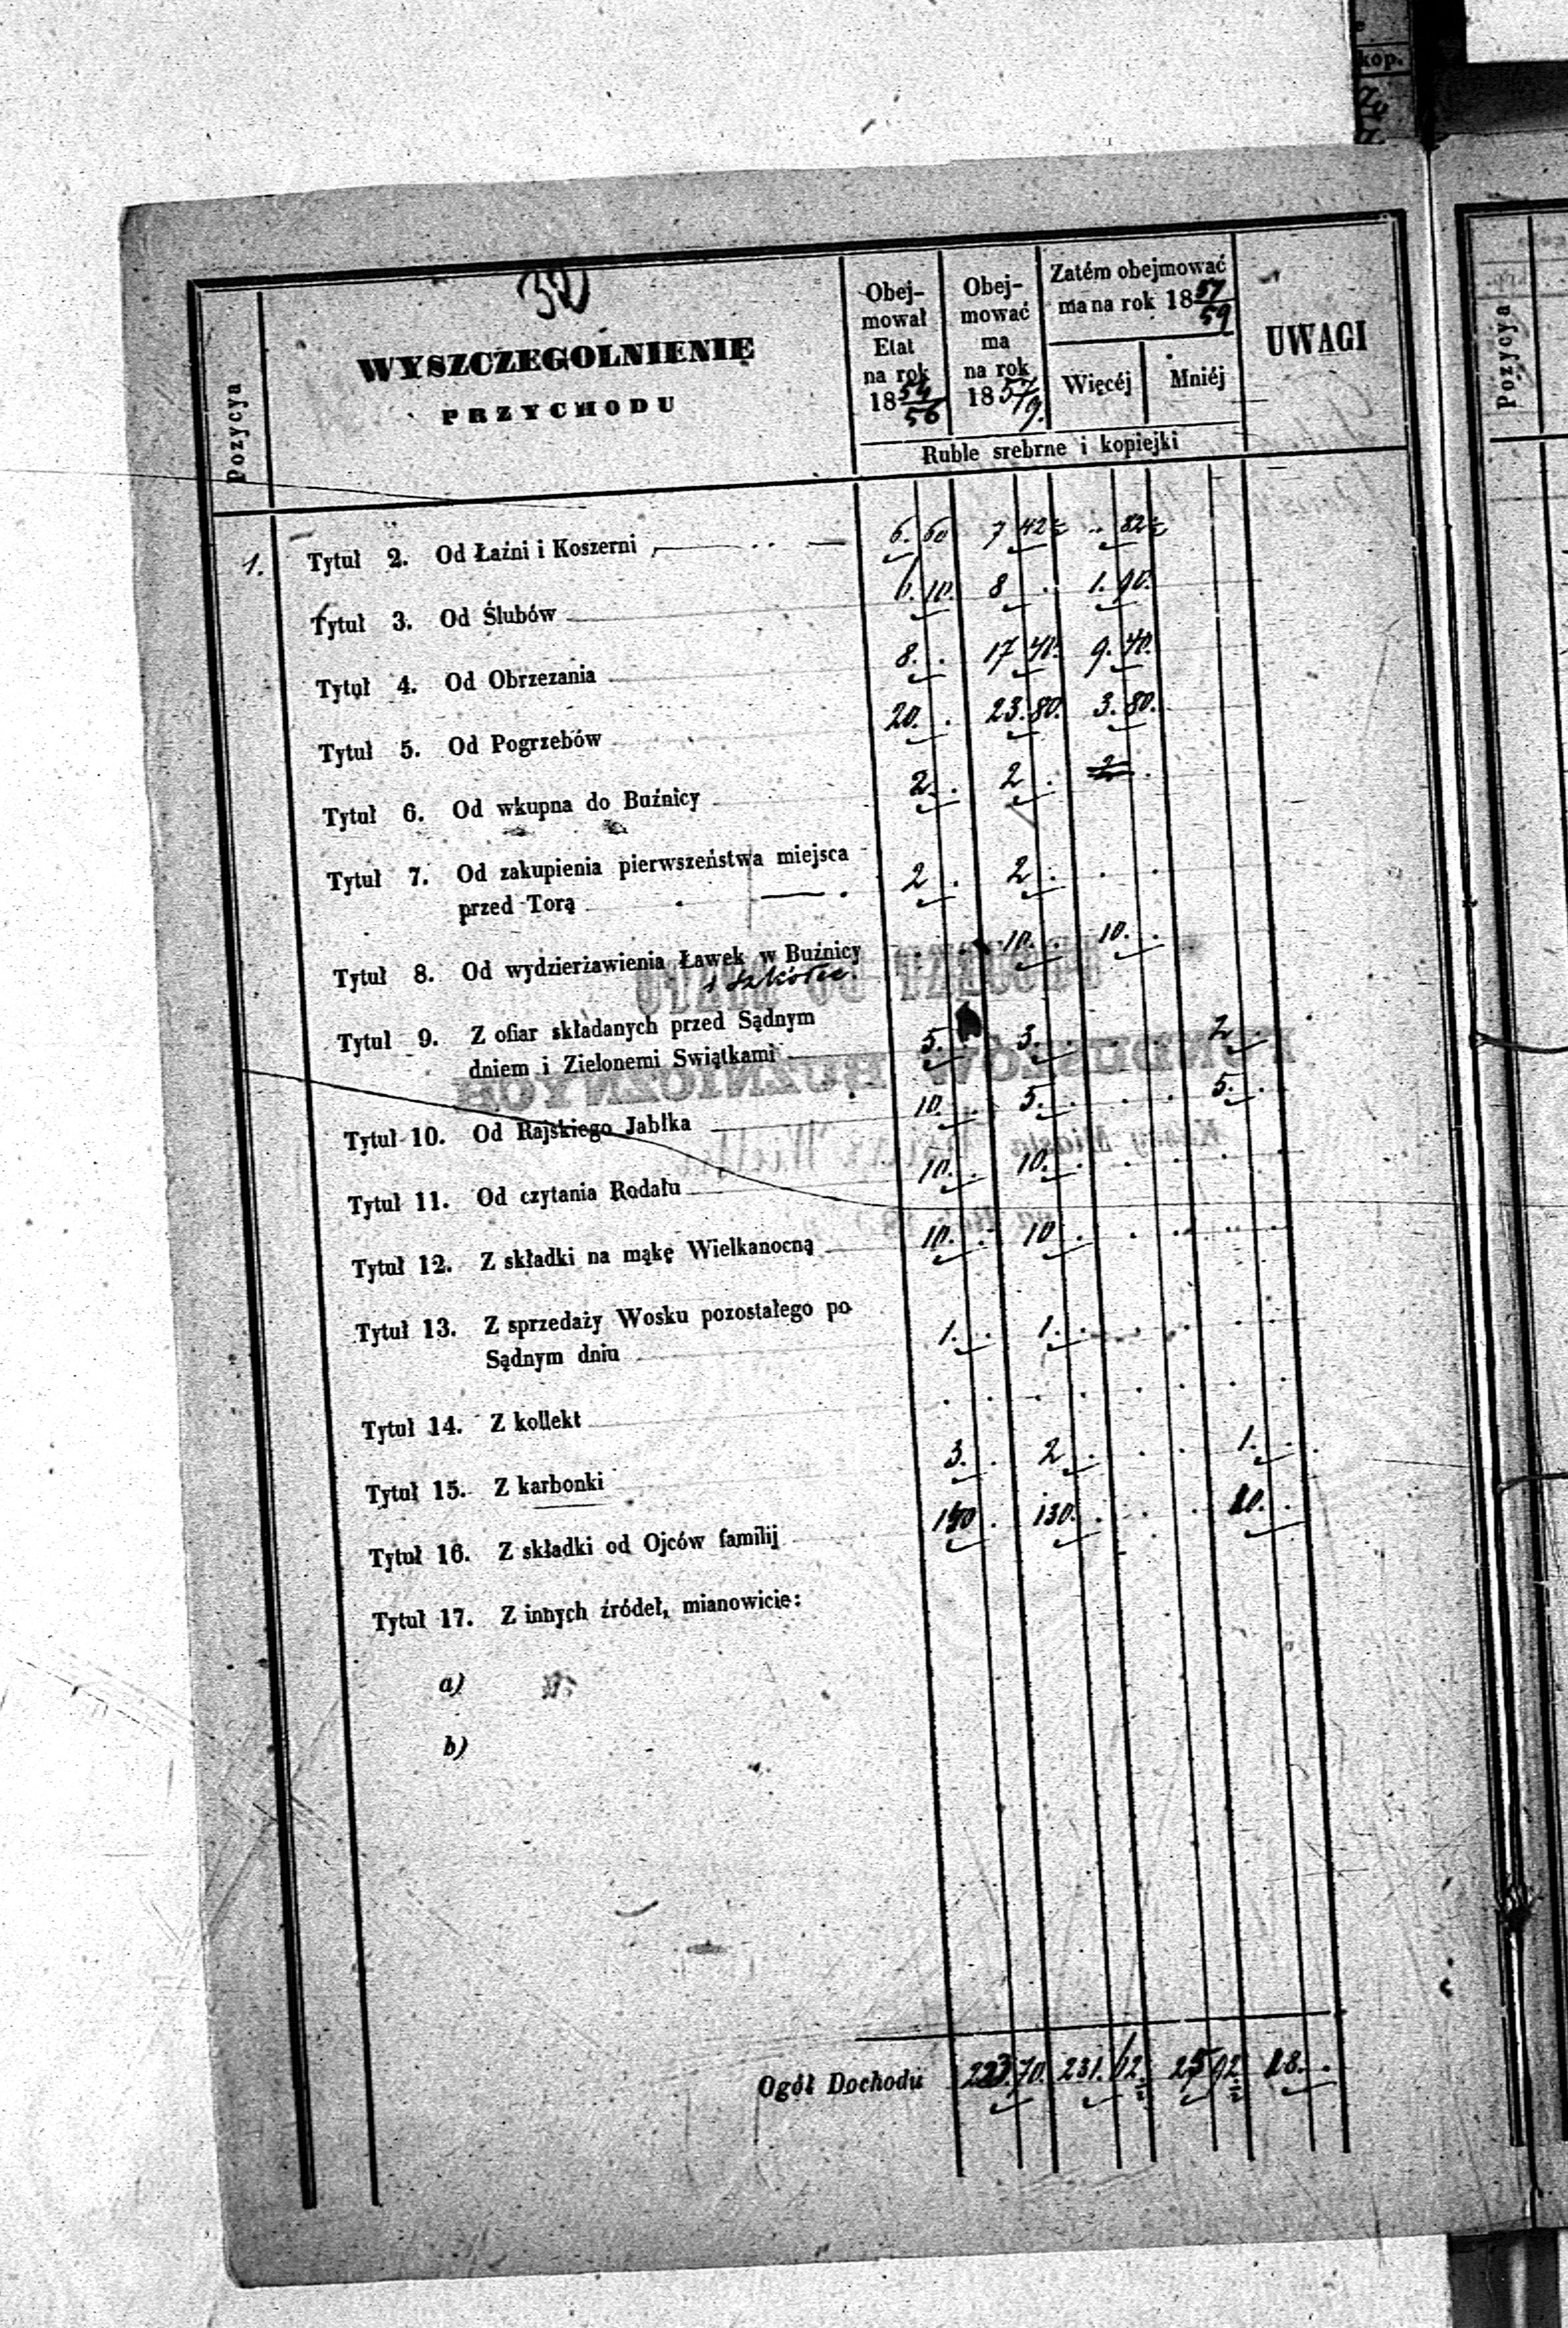 kop.
30
Pozycya
WYSZCZEGOLNIENIE
PRZYCHODU
Obej-
mował
Etat
na rok
18 54/56
Obej-
mować
ma
na rok
18 57/9.
Zatém obejmować
ma na rok 18 57/59
Więcéj
Mniéj
UWAGI
Ruble srebrne i kopiejki
1. Tytuł 2. Od Łaźni i Koszerni 6. 60 7 42½ .. 82½
Tytuł 3. Od Ślubów 6. 10. 8 . 1. 90.
Tytuł 4. Od Obrzezania 8. . 17 40. 9. 40.
Tytuł 5. Od Pogrzebów 20. . 23. 80. 3. 80.
Tytuł 6. Od wkupna do Buźnicy 2. . 2 . .
Tytuł 7. Od zakupienia pierwszeństwa miejsca
przed Torą 2 . 2 . . .
Tytuł 8. Od wydzierżawienia Ławek w Buźnicy . . 10. . 10. .
i szkółce.
Tytuł 9. Z ofiar składanych przed Sądnym
dniem i Zielonemi Swiątkami 5. 3. . . . 2 .
Tytuł 10. Od Rajskiego Jabłka 10. . 5. . . . 5. .
Tytuł 11. Od czytania Rodału 10. . 10. . . . . .
Tytuł 12. Z składki na mąkę Wielkanocną 10. . 10 . . . . .
Tytuł 13. Z sprzedaży Wosku pozostałego po
Sądnym dniu 1. . 1. . . . . .
Tytuł 14. Z kollekt . . . . . . . .
Tytuł 15. Z karbonki 3. . 2 . . . 1. .
Tytuł 16. Z składki od Ojców familij 140 . 130. . . . 10. .
Tytuł 17. Z innych źródeł, mianowicie:
a)
b)
Ogół Dochodu 223. 70. 231. 62½ 25 92½ 18. .
Pozycya